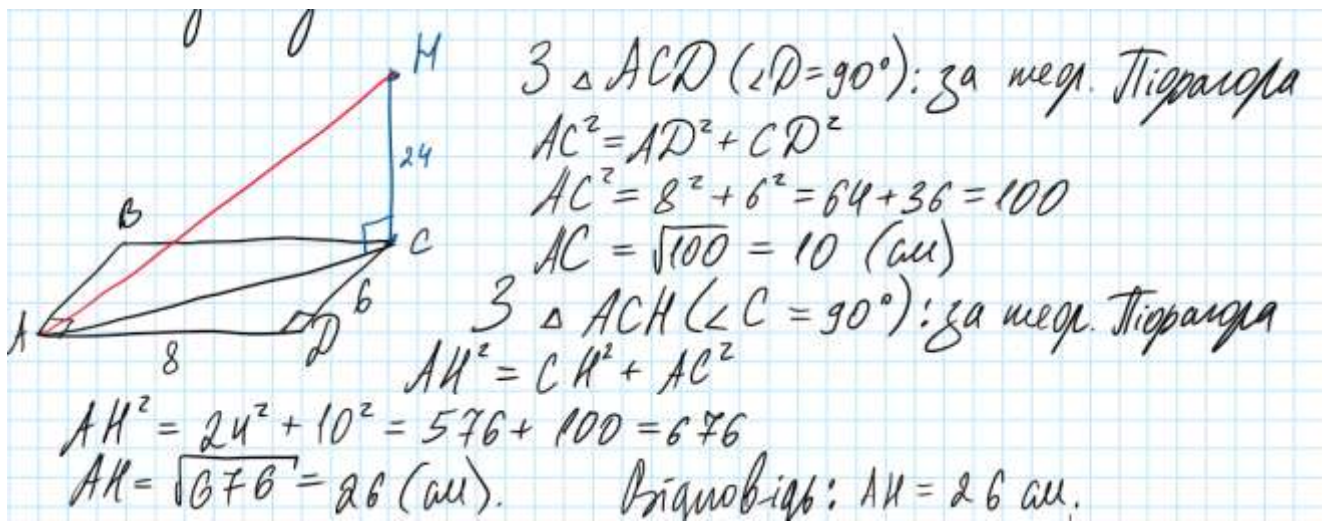 H
З △ ACD (∠D=90°): за теор. Піфагора
24
AC² = AD² + CD²
AC² = 8² + 6² = 64 + 36 = 100
B
C
AC = √100 = 10 (см)
6
З △ ACH (∠C = 90°): за теор. Піфагора
A
D
8
AH² = CH² + AC²
AH² = 24² + 10² = 576 + 100 = 676
AH = √676 = 26 (см). Відповідь: AH = 26 см.